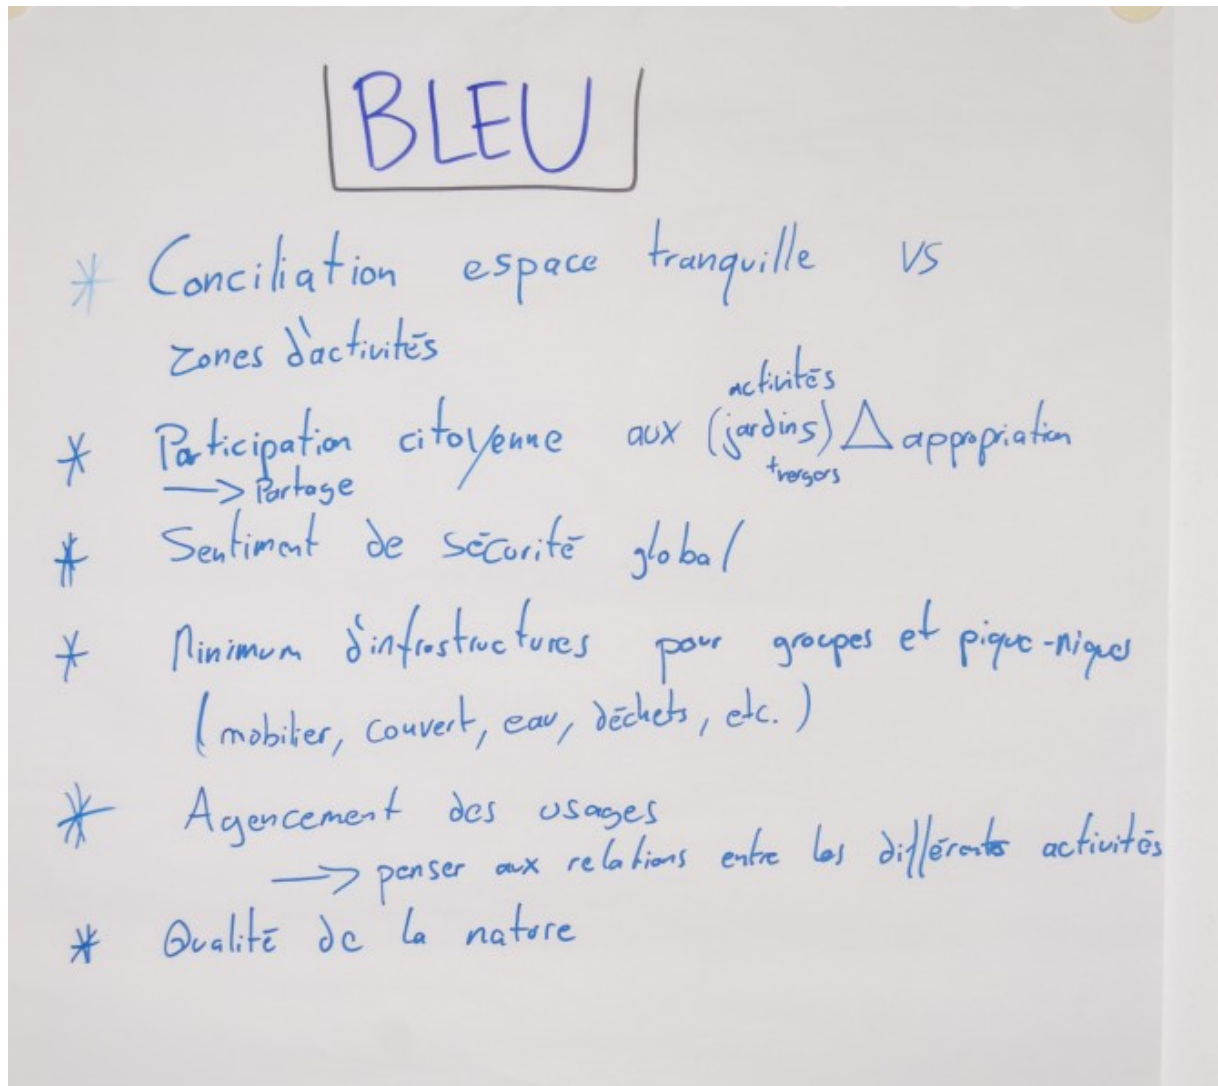 BLEU
* Conciliation espace tranquille vs
zones d'activités
activités
* Participation citoyenne aux (jardins) △ appropriation
+ vergers
→ Partage
* Sentiment de sécurité global
* Minimum d'infrastructures pour groupes et pique-niques
(mobilier, couvert, eau, déchets, etc.)
* Agencement des usages
→ penser aux relations entre les différents activités
* Qualité de la nature